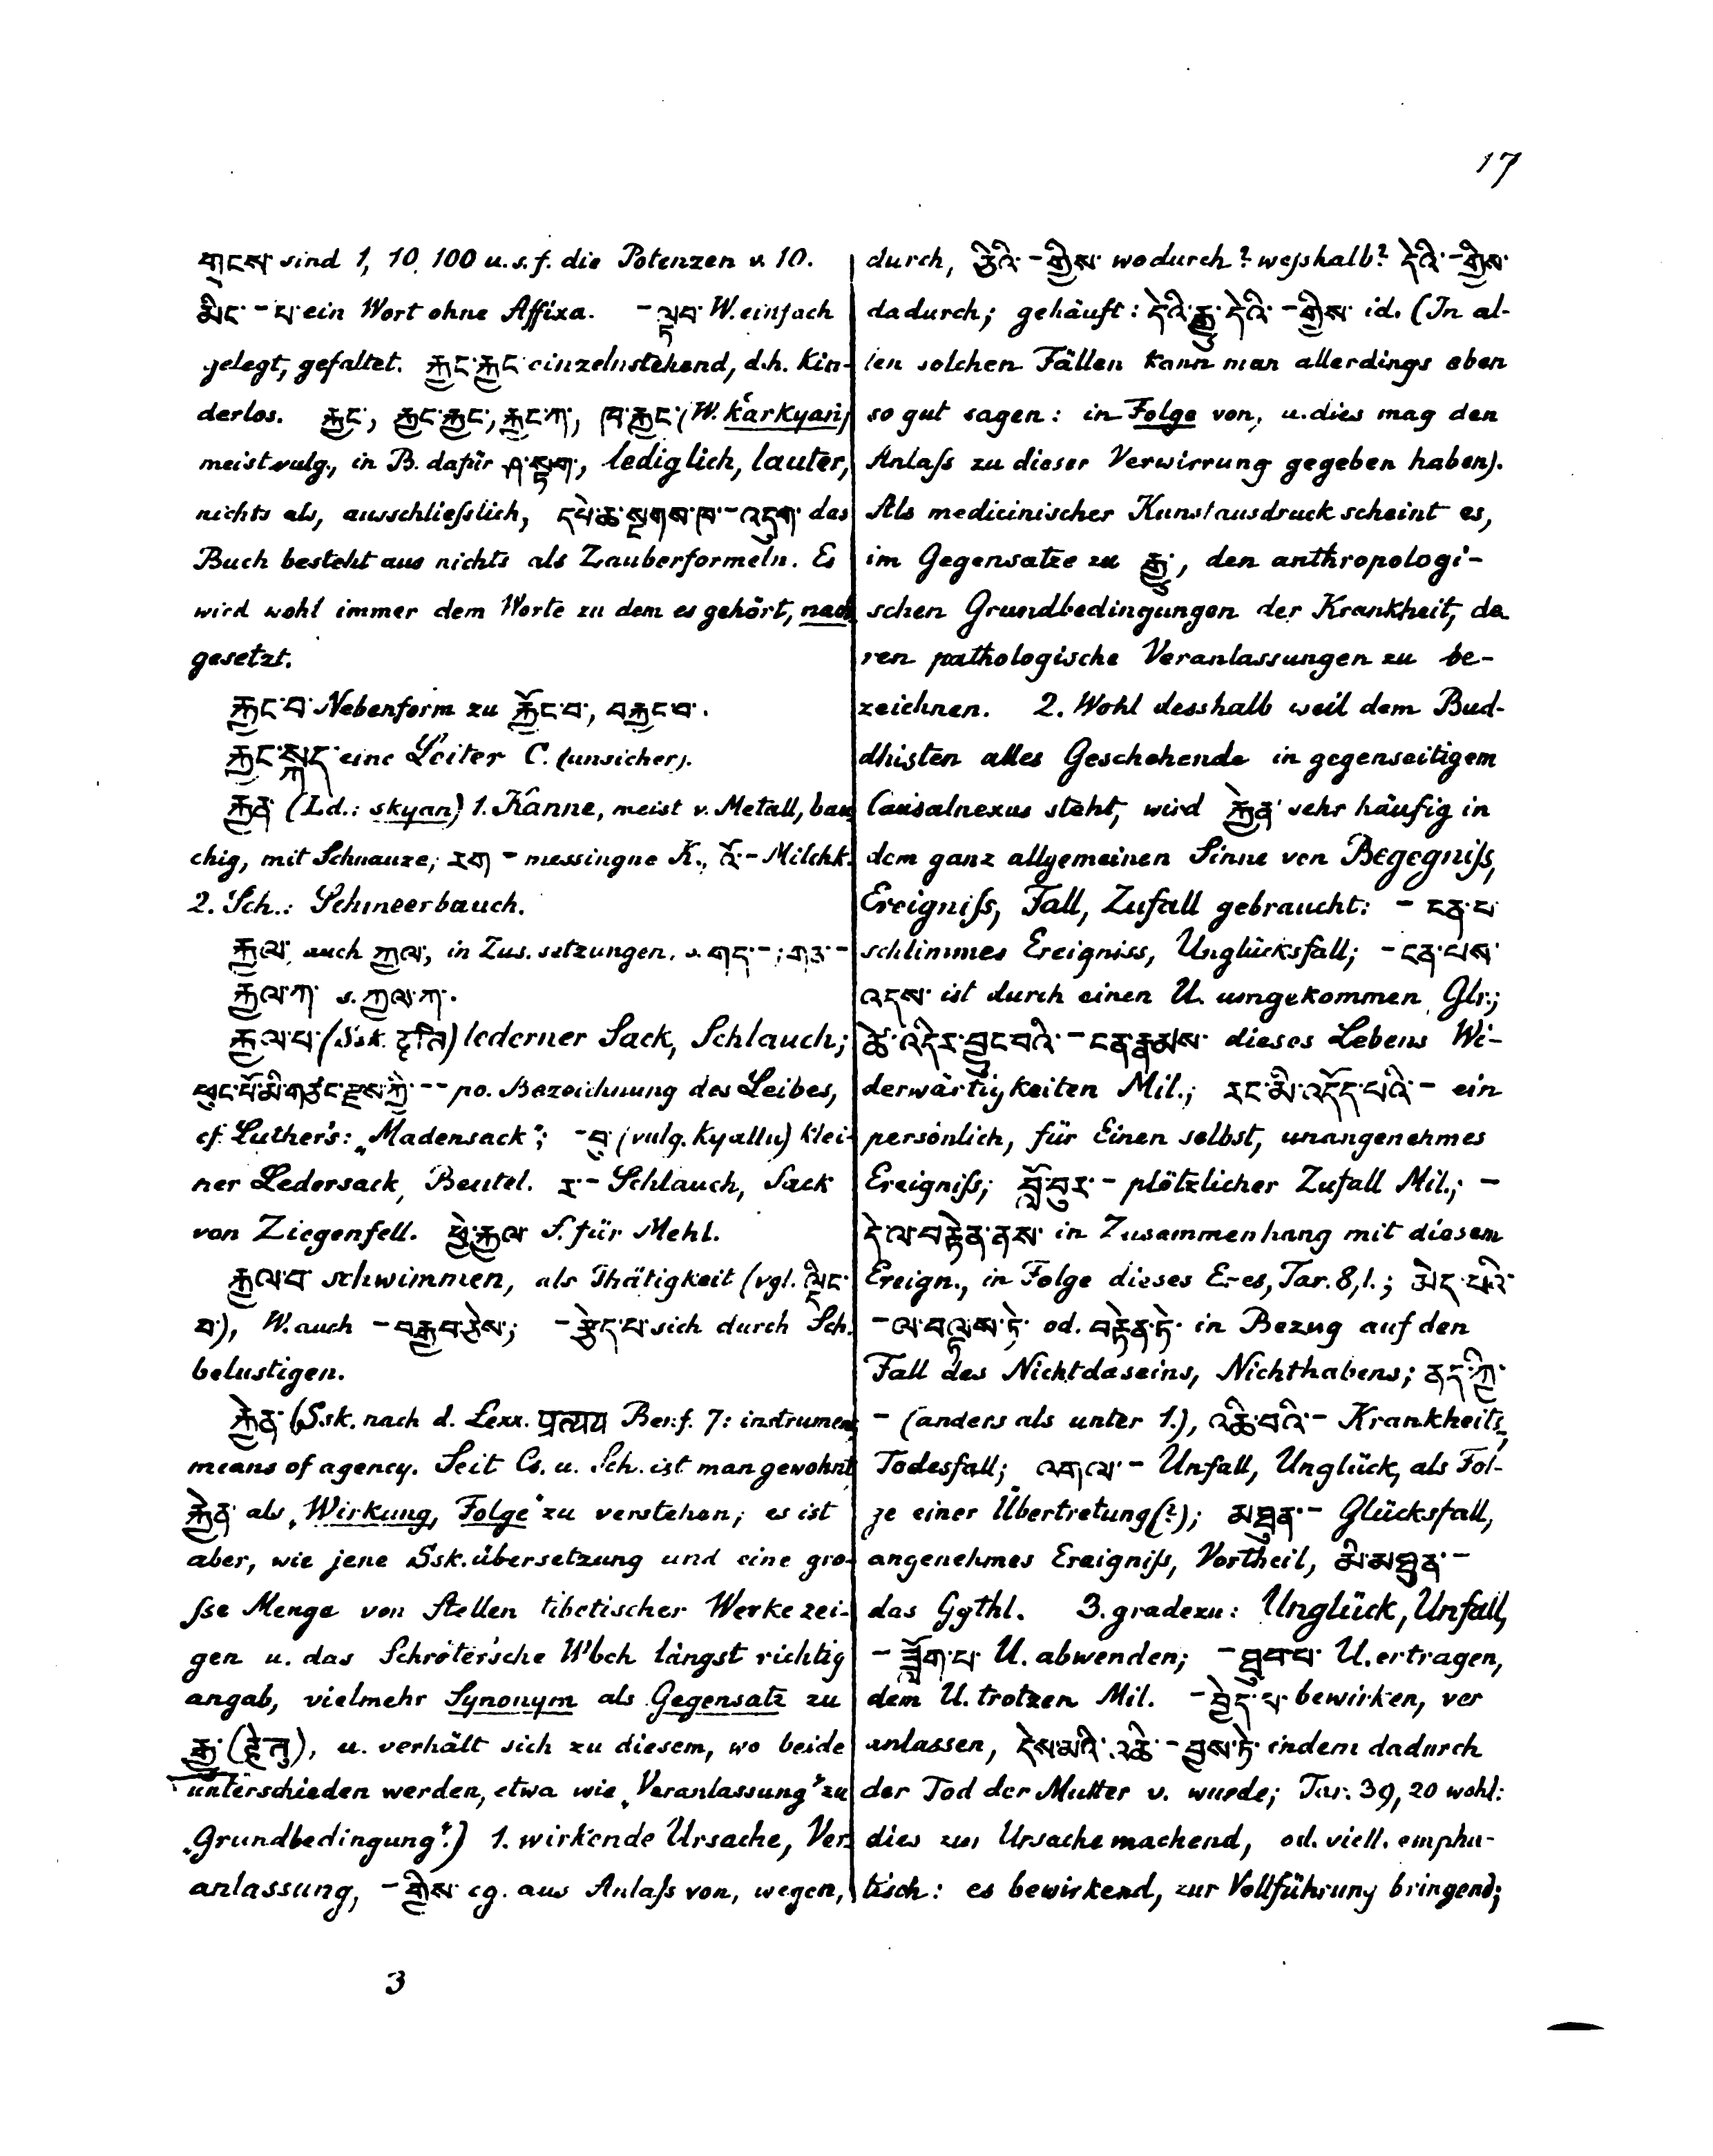 17
གྲངས་ sind 1, 10, 100 u.s.f. die Potenzen v. 10.
མིང་ - པ་ ein Wort ohne Affixa. - ལྟབ་ W. einfach
gelegt, gefaltet. རྐྱང་རྐྱང་ einzelnstehend, d.h. kin-
derlos. རྐྱང་, རྐྱང་རྐྱང་, རྐྱང་ཀ་, ཁ་རྐྱང་ (W. karkyaṅ)
meist vulg., in B. dafür ཤ་སྟག་, lediglich, lauter,
nichts als, ausschliesslich, དཔེ་ཆ་སྔགས་ཁ་ - འདུག་ das
Buch besteht aus nichts als Zauberformeln. Es
wird wohl immer dem Worte zu dem es gehört, nach
gesetzt.
རྐྱང་བ་ Nebenform zu རྐྱོང་བ་, བརྐྱང་བ་.
རྐྱང་སྐད་ eine Leiter C. (unsicher).
རྐྱན་ (Ld.: skyan) 1. Kanne, meist v. Metall, bau
chig, mit Schnauze; རག་ - messingne K., འོ་ - Milchk.
2. Sch.: Schmeerbauch.
རྐྱལ་ auch ཀྱལ་, in Zus. setzungen. s. གད་ - ;
རྐྱལ་ཀ་ s. ཀྱལ་ཀ་.
རྐྱལ་པ་ (Ssk. दृति) lederner Sack, Schlauch;
ཕུང་པོ་མི་གཙང་རྫས་ཀྱི་ - - po. Bezeichnung des Leibes,
cf. Luther's: „Madensack“; - བུ་ (vulg. kyallu) klei-
ner Ledersack, Beutel. ར་ - Schlauch, Sack
von Ziegenfell. ཕྱེ་རྐྱལ་ S. für Mehl.
རྐྱལ་བ་ schwimmen, als Thätigkeit (vgl. ལྡིང་
བ་), W. auch - བརྒྱབ་ཅེས་; - རྩེད་པ་ sich durch Sch.
belustigen.
རྐྱེན་ (Ssk. nach d. Lexx. प्रत्यय Benf. 7: instrument
means of agency. Seit Cs. u. Sch. ist man gewohnt
རྐྱེན་ als „Wirkung, Folge“ zu verstehen; es ist
aber, wie jene Ssk. übersetzung und eine gro-
sse Menge von Stellen tibetischer Werke zei-
gen u. das Schröter'sche Wbch längst richtig
angab, vielmehr Synonym als Gegensatz zu
རྒྱུ་ (हेतु), u. verhält sich zu diesem, wo beide
unterschieden werden, etwa wie „Veranlassung“ zu
„Grundbedingung“.) 1. wirkende Ursache, Ver-
anlassung, - གྱིས་ cg. aus Anlass von, wegen,
3
durch, ཅིའི་ - གྱིས་ wodurch? wesshalb? དེའི་ - གྱིས་
dadurch; gehäuft: དེའི་རྒྱུ་དེའི་ - གྱིས་ id. (In al-
len solchen Fällen kann man allerdings eben
so gut sagen: in Folge von, u. dies mag den
Anlass zu dieser Verwirrung gegeben haben).
Als medicinischer Kunstausdruck scheint es,
im Gegensatze zu རྒྱུ་, den anthropologi-
schen Grundbedingungen der Krankheit, de
ren pathologische Veranlassungen zu be-
zeichnen. 2. Wohl desshalb weil dem Bud-
dhisten alles Geschehende in gegenseitigem
Causalnexus steht, wird རྐྱེན་ sehr häufig in
dem ganz allgemeinen Sinne von Begegniss,
Ereigniss, Fall, Zufall gebraucht: - ངན་པ་
schlimmes Ereigniss, Unglücksfall; - ངན་པས་
འདས་ ist durch einen U. umgekommen Glr.;
ཚེ་འདིར་བྱུང་བའི་ - ངན་རྣམས་ dieses Lebens Wi-
derwärtigkeiten Mil.; རང་མི་འདོད་པའི་ - ein
persönlich, für Einen selbst, unangenehmes
Ereigniss; བློ་བུར་ - plötzlicher Zufall Mil.; -
དེ་ལ་བརྟེན་ནས་ in Zusammenhang mit diesem
Ereign., in Folge dieses E-es, Tar. 8,1.; མེད་པའི་
- ལ་བལྟས་ཏེ་ od. བརྟེན་ཏེ་ in Bezug auf den
Fall des Nichtdaseins, Nichthabens; ནད་ཀྱི་
- (anders als unter 1.), འཆི་བའི་ - Krankheits,
Todesfall; འགལ་ - Unfall, Unglück, als Fol-
ge einer Übertretung(?); མཐུན་ - Glücksfall,
angenehmes Ereigniss, Vortheil, མི་མཐུན་ -
das Ggthl. 3. gradezu: Unglück, Unfall,
- ཟློག་པ་ U. abwenden; - ཐུབ་པ་ U. ertragen,
dem U. trotzen Mil. - བྱེད་པ་ bewirken, ver
anlassen, དེས་མའི་འཆི་ - བྱས་ཏེ་ indem dadurch
der Tod der Mutter v. wurde; Tar. 39, 20 wohl:
dies zur Ursache machend, od. viell. empha-
tisch: es bewirkend, zur Vollführung bringend;